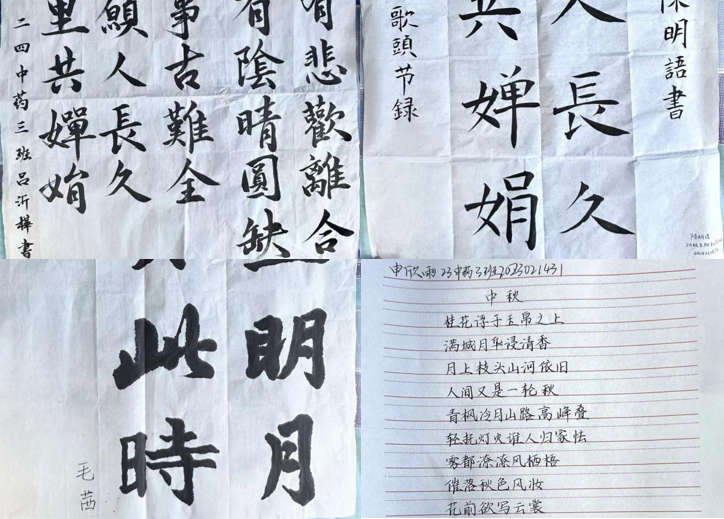 有悲歡離合
有陰晴圓缺
事古難全
願人長久
里共嬋娟
二四中药三班吕沂樺書
陳明語書
人長久
共婵娟
歌頭节録
明月
此時
毛茜
申欣雨 23中药3班2023021431
中秋
桂花浮于玉帛之上
满城月华浸清香
月上枝头山河依旧
人间又是一轮秋
青枫冷月山路高峰叠
轻托灯火谁人归家怯
雾都潦潦风栖梧
催落秋色风妆
花前欲写云裳